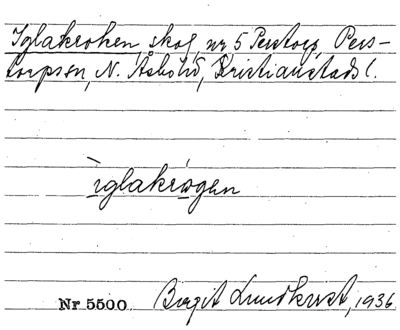 Iglakroken, skog, nr 5 Perstorp, Pers-
torps sn, N. Åsbo hd, Kristianstads l.
ìglakrógen
Nr 5500 Birgit Lundkvist, 1936